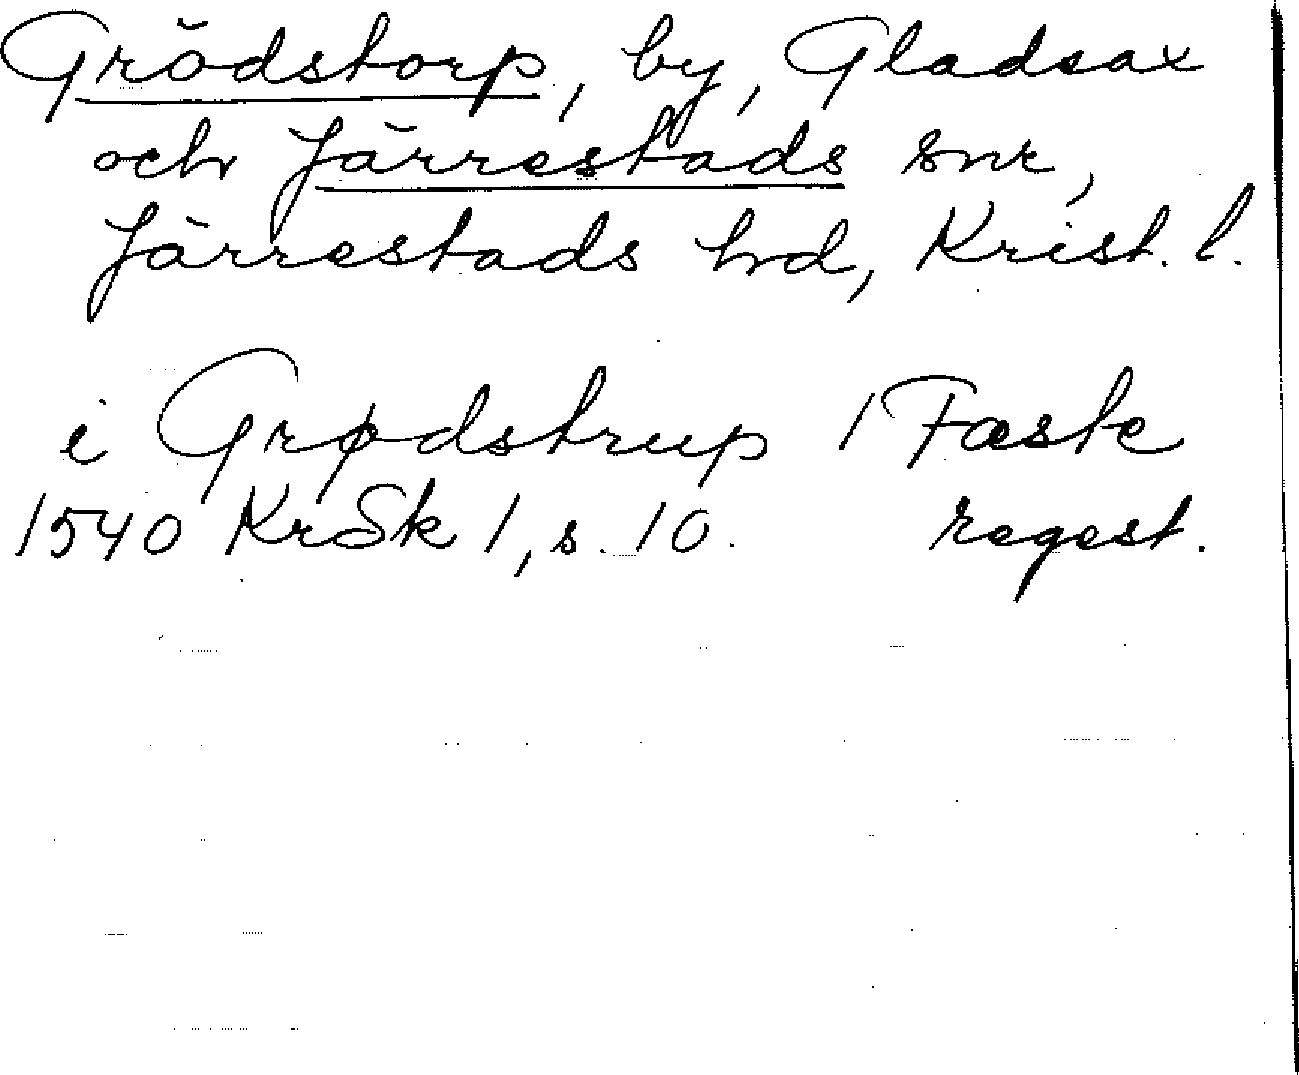 Grödstorp, by, Gladsax
och Järrestads snr,
Järrestads hrd, Krist. l.
i Grødstrup / Fæste
1540 KrSk 1, s. 10. regest.